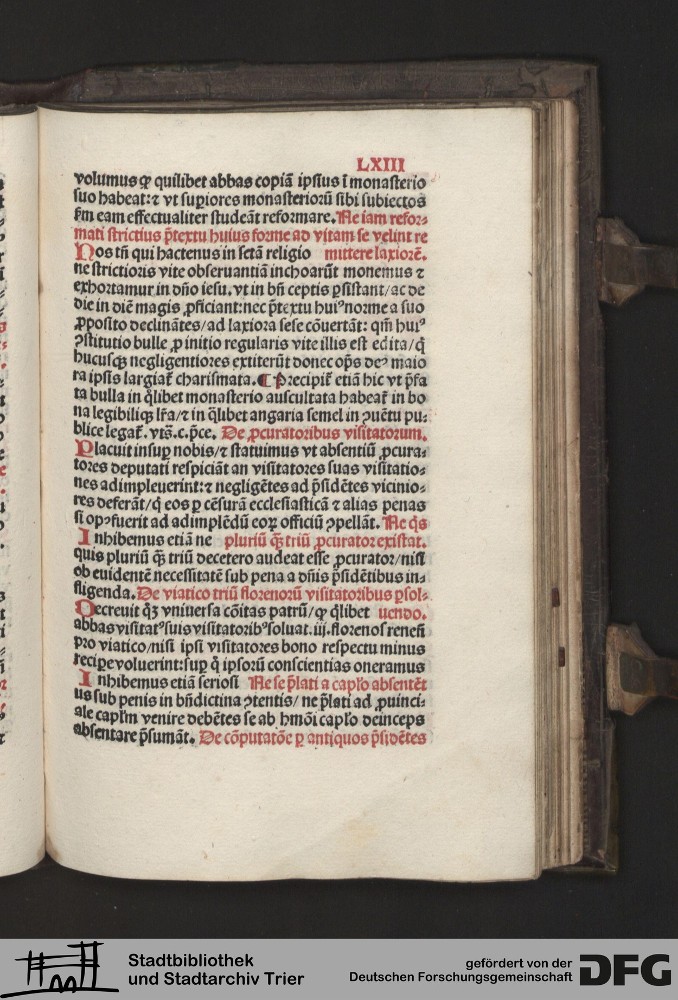 LXIII
volumus ꝙ quilibet abbas copiā ipsius ī monasterio
suo habeat:⁊ vt suꝑiores monasteriorū sibi subiectos
ẜm eam effectualiter studeāt reformare. Ne iam refor⸗
mati strictius p̄textu huius forme ad vitam se velint re
Nos tñ qui hactenus in setā religio mittere laxiorē.
ne strictioris vite obseruantiā inchoarūt monemus ⁊
exhortamur in dño iesu. vt in bñ ceptis ꝑsistant/ac de
die in diē magis ꝓficiant:nec p̄textu huiꝰ norme a suo
ꝓposito declinātes/ad laxiora sese cōuertāt: qm̄ huiꝰ
ꝯstitutio bulle ꝓ initio regularis vite illis est edita/q̄
hucusqꝫ negligentiores extiterūt donec op̄s deꝰ maio
ra ipsis largiat᷑ charismata. ¶ Precipit᷑ etiā hic vt p̄fa
ta bulla in q̄libet monasterio auscultata habeat᷑ in bo
na legibiliqꝫ lr̄a/⁊ in q̄libet angaria semel in ꝯuētu pu⸗
blice legat᷑. vts̄.c.p̄ce. De ꝓcuratoribus visitatorum.
Placuit insuꝑ nobis/⁊ statuimus vt absentiū ꝓcura⸗
tores deputati respiciāt an visitatores suas visitatio⸗
nes adimpleuerint:⁊ negligētes ad p̄sidētes vicinio⸗
res deferāt/q̄ eos ꝑ cēsurā ecclesiasticā ⁊ alias penas
si opꝰfuerit ad adimplēdū eoꝝ officiū ꝯpellāt. Ne q̄s
Inhibemus etiā ne pluriū q̄ꝫ triū ꝓcurator existat.
quis pluriū q̄ꝫ triū decetero audeat esse ꝓcurator/nisi
ob euidentē necessitatē sub pena a dñis p̄sidētibus in⸗
fligenda. De viatico triū florenorū visitatoribus ꝑsol⸗
Decreuit q̄ꝫ vniuersa cōitas patrū/ꝙ q̄libet uendo.
abbas visitatꝰ suis visitatoribꝰ soluat.iij.florenos reneñ
pro viatico/nisi ipsi visitatores bono respectu minus
reciꝑe voluerint:suꝑ q̄ ipsorū conscientias oneramus
Inhibemus etiā seriosi Ne se p̄lati a capl̄o absentēt
us sub penis in bñdictina ꝯtentis/ne p̄lati ad ꝓuinci⸗
ale capl̄m venire debētes se ab hm̄oi capl̄o deinceps
absentare p̄sumāt. De cōputatōe ꝑ antiquos p̄sidētes
Stadtbibliothek
und Stadtarchiv Trier
gefördert von der
Deutschen Forschungsgemeinschaft
DFG